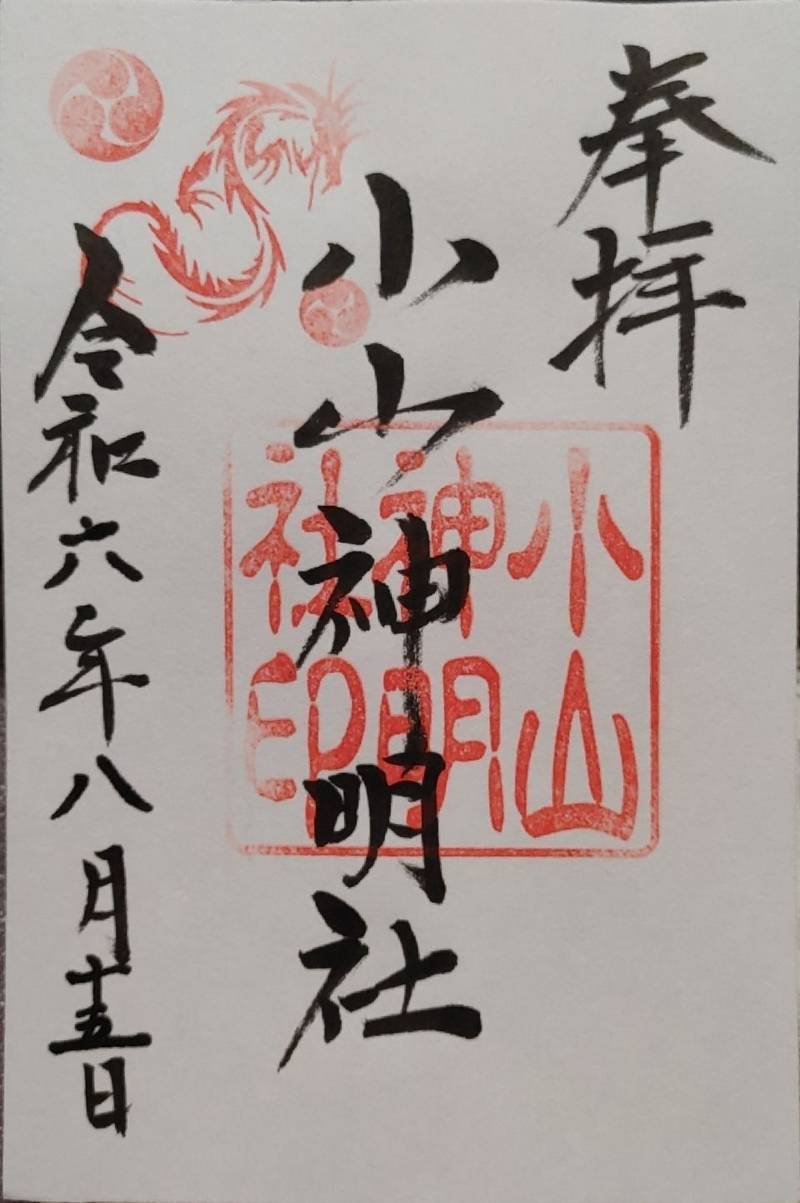 奉拝
小山神明社
小山
神明
社印
令和六年八月十五日